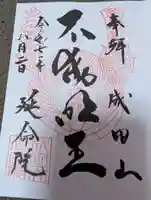 奉拝 成田山
不動明王
令和七年
八月二日
延命院